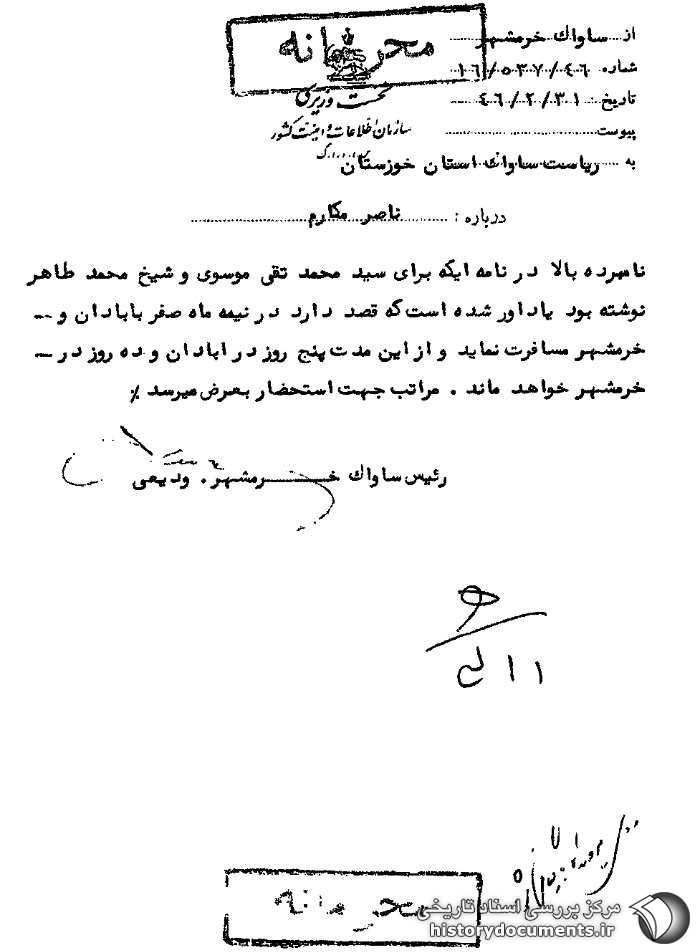 محرمانه
از ساواك خرمشهر
شماره ۱۶/۵۳۷/۴۶
تاریخ: ۴۶/۲/۳۱
نخست وزیری
سازمان اطلاعات و امنیت کشور
پیوست
س.ا.و.ا.ك
به ریاست ساواك استان خوزستان
درباره: ناصر مکارم
نامبرده بالا در نامه ایکه برای سید محمد تقی موسوی و شیخ محمد طاهر
نوشته بود یادآور شده است که قصد دارد در نیمه ماه صفر بآبادان و -
خرمشهر مسافرت نماید و از این مدت پنج روز در آبادان و ده روز در -
خرمشهر خواهد ماند . مراتب جهت استحضار بعرض میرسد ٪
رئیس ساواك خرمشهر . ودیعی
محرمانه
مرکز بررسی اسناد تاریخی
historydocuments.ir